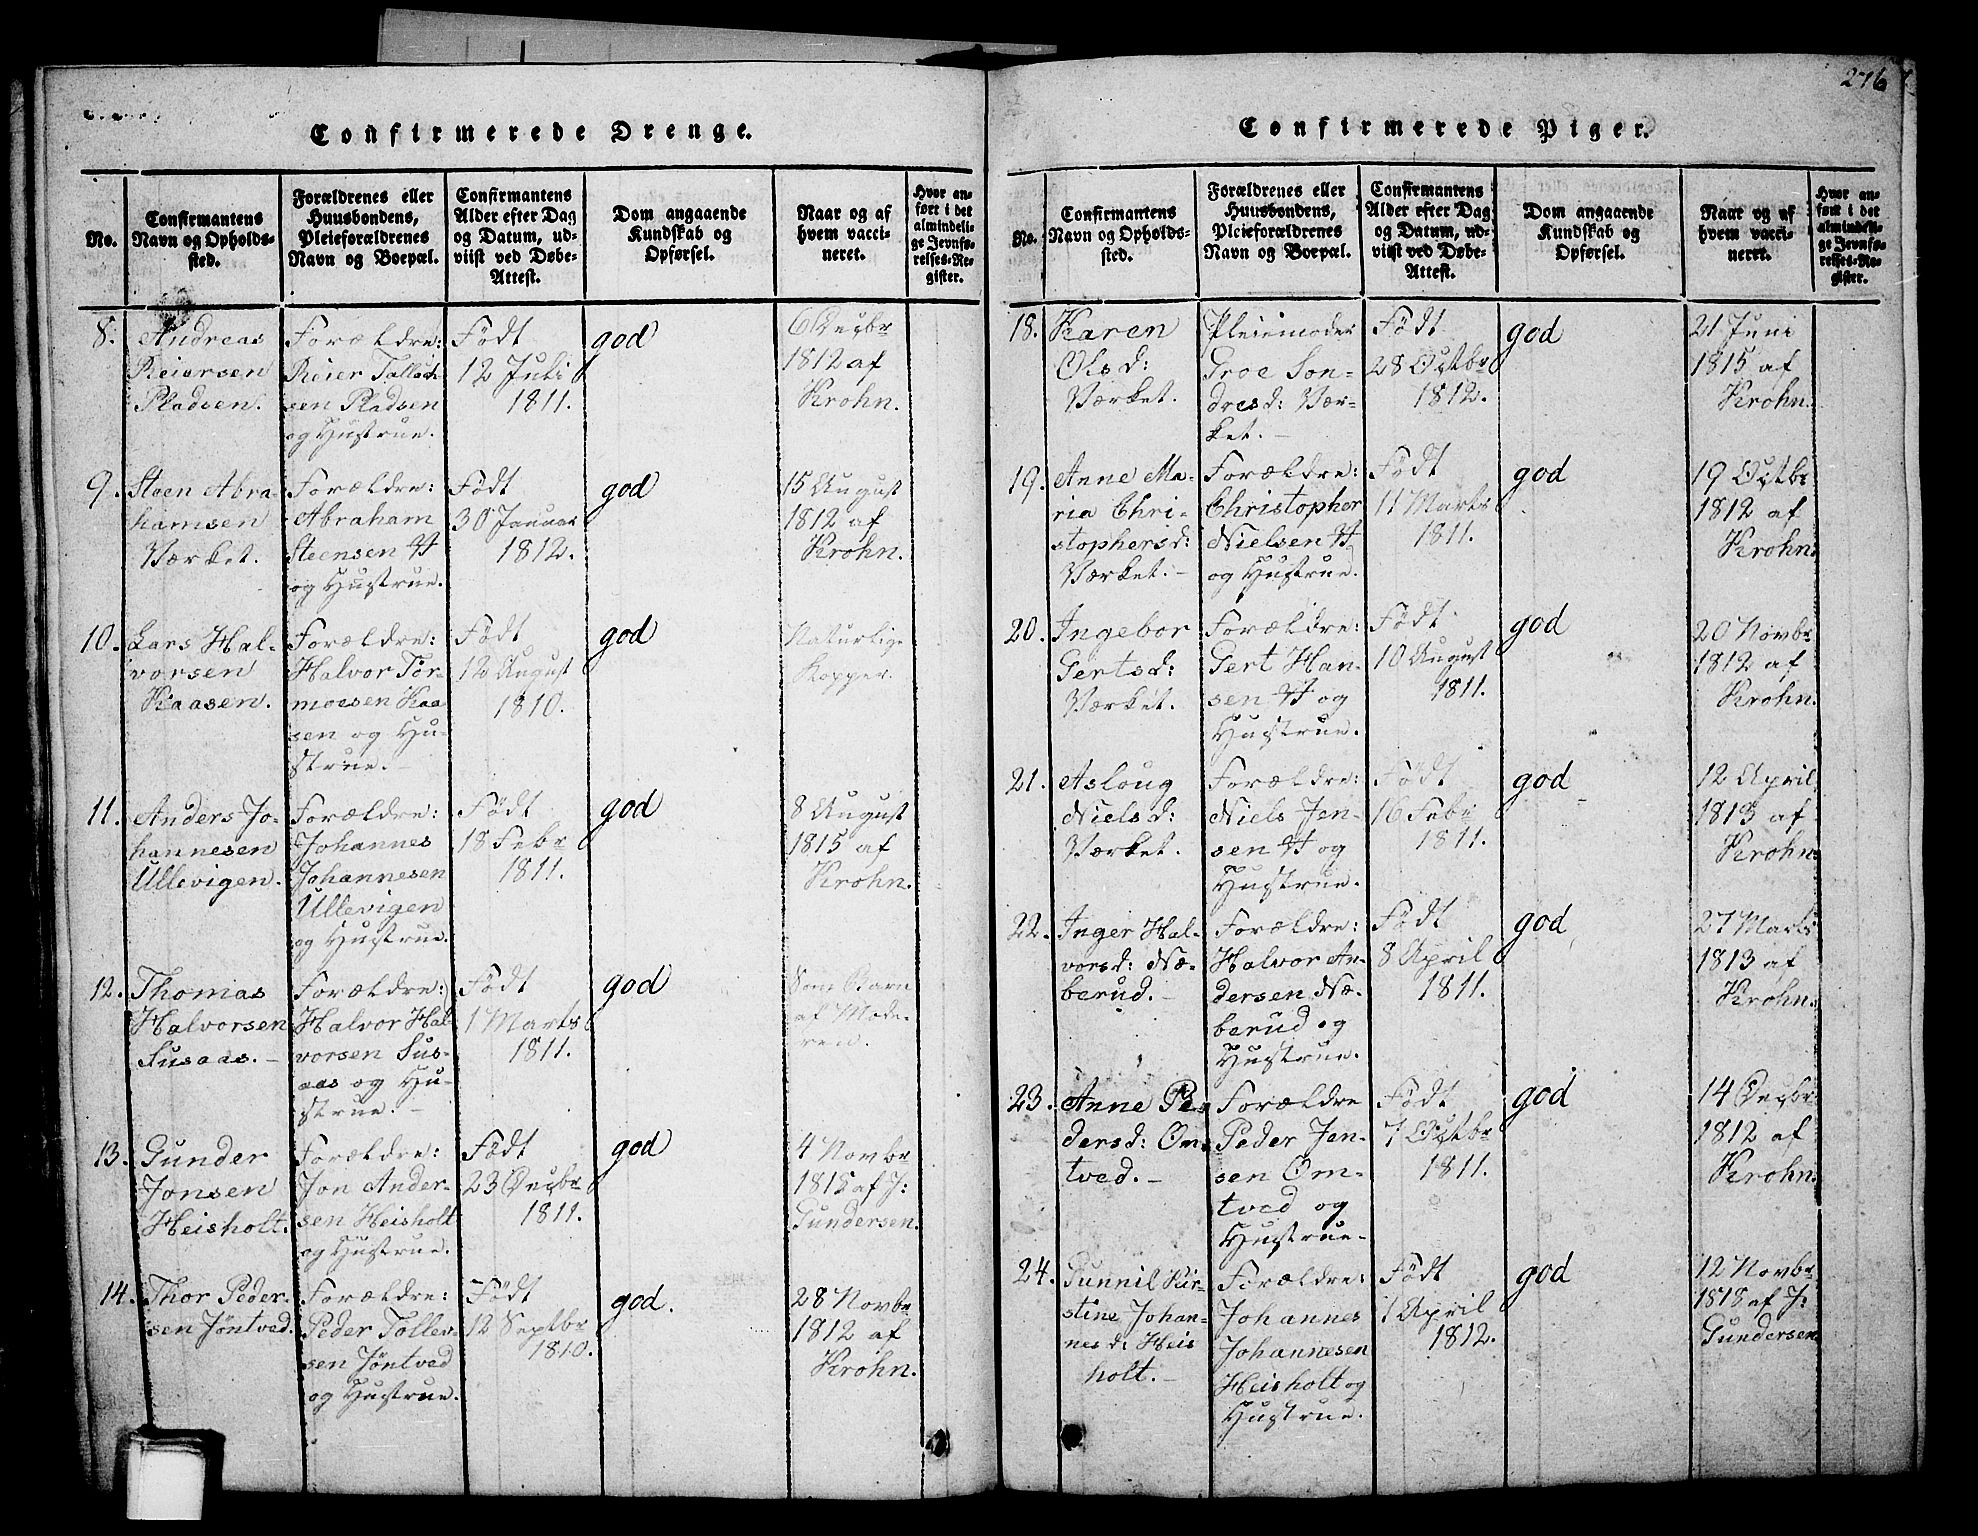 276
Confirmerede Drenge.
No.
Confirmantens
Navn og Opholds-
sted.
Forældrenes eller
Huusbondens,
Pleieforældrenes
Navn og Boepæl.
Confirmantens
Alder efter Dag
og Datum, ud-
viist ved Døbe-
Attest.
Dom angaaende
Kundskab og
Opførsel.
Naar og af
hvem vacci-
neret.
Hvor an-
ført i det
almindeli-
ge Jevnfø-
relses-Re-
gister.
8.
Andreas
Reiersen
Pladsen.
Forældre:
Reier Tallach-
sen Pladsen
og Hustrue.
Født
12 Juli
1811.
god
6 Decbr
1812 af
Krohn.
9.
Steen Abra-
hamsen
Værket.
Forældre:
Abraham
Steensen
og Hustrue.
Født
30 Januar
1812.
god
15 August
1812 af
Krohn.
10.
Lars Hal-
vorsen
Kaasen.
Forældre:
Halvor Tor-
moesen Kaa
sen og Hu-
strue.
Født
12 August
1810.
god
Naturlige
Kopper.
11.
Anders Jo-
hannesen
Ullevigen.
Forældre:
Johannes
Johannesen
Ullevigen
og Hustrue.
Født
18 Febr
1811.
god
8 August
1815 af
Krohn.
12.
Thomas
Halvorsen
Susaas.-
Forældre:
Halvor Hal-
vorsen Sus-
aas og Hu-
strue.-
Født
1 Marts
1811.
god
Som Barn
af Mode-
ren.
13.
Gunder
Jonsen
Heisholt.
Forældre:
Jon Ander-
sen Heisholt
og Hustrue.
Født
23 Decbr
1811.
god
4 Novbr
1815 af J:
Gundersen.
14.
Thor Peder-
sen Jøntved.
Forældre:
Peder Tollev-
sen Jøntved
og Hustrue.
Født
12 Septbr
1810.
god.
28 Novbr
1812 af
Krohn.
Confirmerede Piger.
No.
Confirmantens
Navn og Opholds-
sted.
Forældrenes eller
Huusbondens,
Pleieforældrenes
Navn og Boepæl.
Confirmantens
Alder efter Dag
og Datum, ud-
viist ved Døbe-
Attest.
Dom angaaende
Kundskab og
Opførsel.
Naar og af
hvem vacci-
neret.
Hvor an-
ført i det
almindeli-
ge Jevnfø-
relses-Re-
gister.
18.
Karen
Olsd:
Værket.
Pleiemoder
Groe Son-
dresd: Vær-
ket.-
Født
28 Octbr
1812.
god
21 Juni
1815 af
Krohn.
19.
Anne Ma-
ria Chri-
stophersd:
Værket.-
Forældre:
Christopher
Nielsen
og Hustrue.
Født
11 Marts
1811.
god
19 Octbr
1812 af
Krohn.
20.
Ingebor
Gertsd:
Værket.
Forældre:
Gert Han-
sen og
Hustrue.
Født
10 August
1811.
god
20 Novbr
1812 af
Krohn.
21.
Asloug
Nielsd:
Værket.
Forældre:
Niels Jen-
sen og
Hustrue.
Født
16 Febr
1811.
god
12 April
1813 af
Krohn.
22.
Inger Hal-
vorsd: Næ-
berud.-
Forældre:
Halvor An-
dersen Næ-
berud og
Hustrue.
Født
8 April
1811.
god
27 Marts
1813 af
Krohn.
23.
Anne Pe-
dersd: Øm-
tved.-
Forældre
Peder Jen-
sen Øm-
tved og
Hustrue-
Født
7 Octbr
1811.
god
14 Decbr
1812 af
Krohn.
24.
Gunnil Kir-
stine Johan-
nesd: Heis
holt.-
Forældre:
Johannes
Johannesen
Heisholt og
Hustrue.
Født
1 April
1812.
god
12 Novbr
1818 af J:
Gundersen